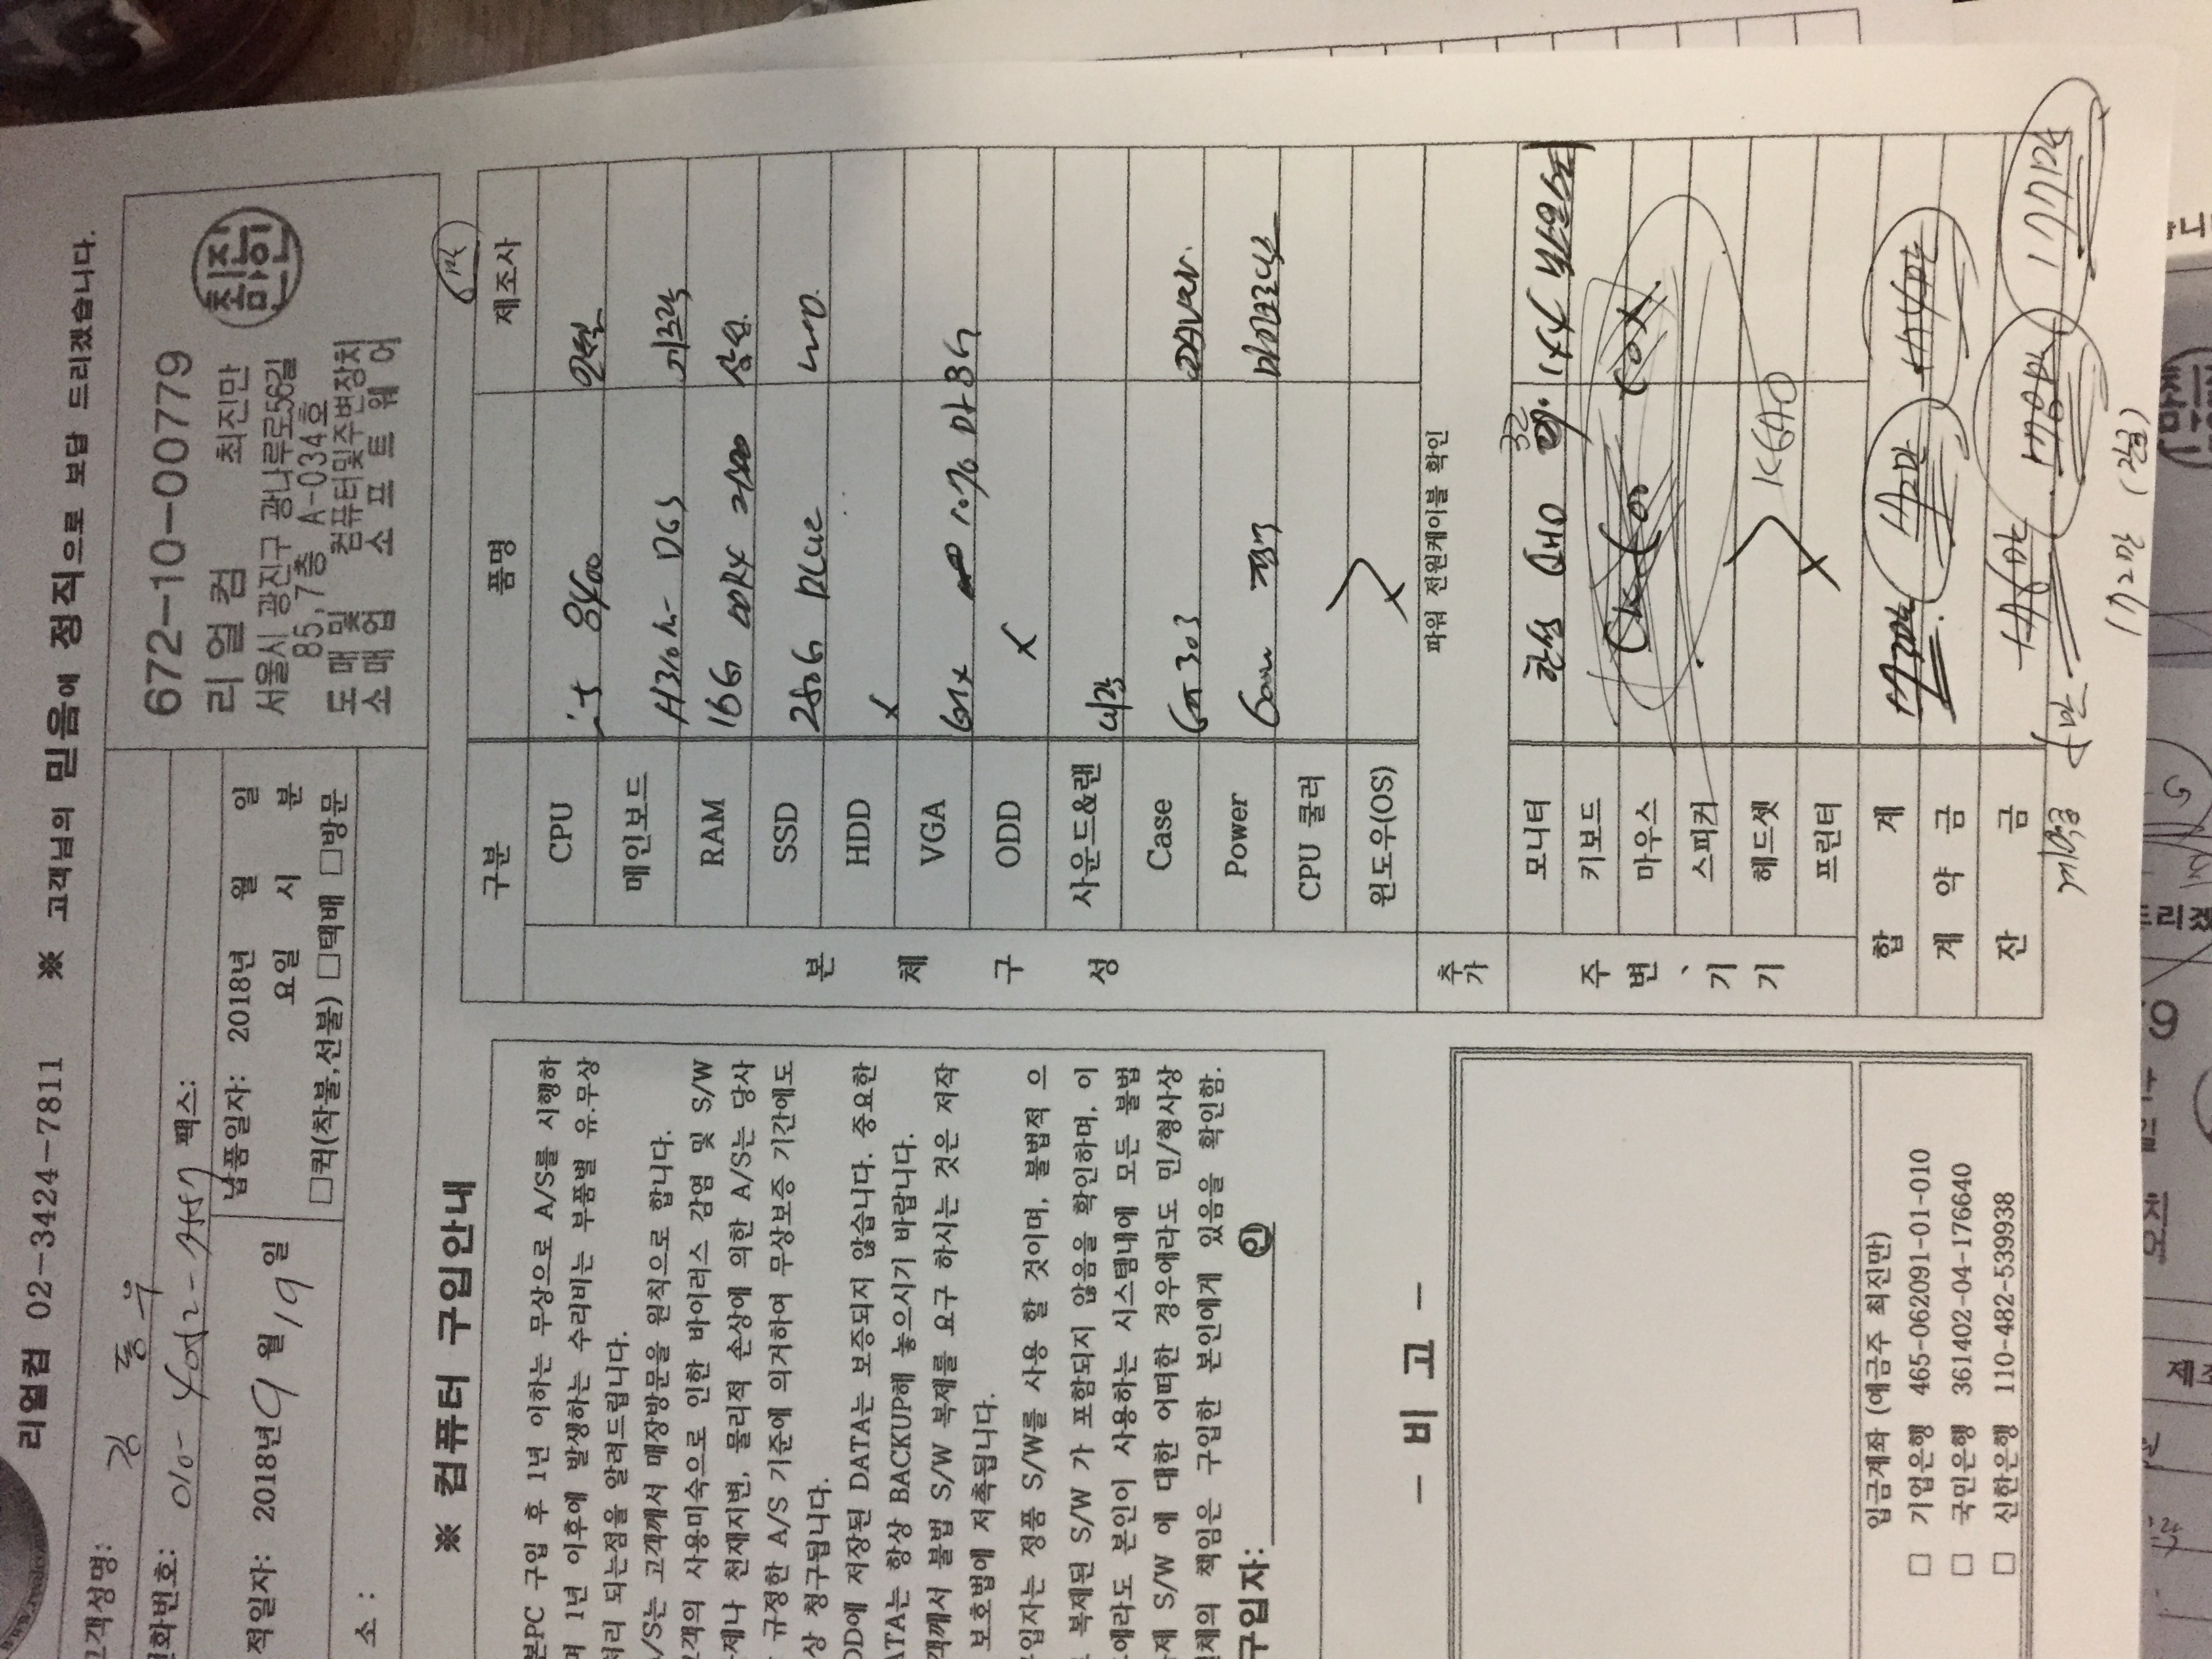 리얼컴 02-3424-7811 ※ 고객님의 믿음에 정직으로 보답 드리겠습니다.
고객성명: 김동우
전화번호: 010- 팩스:
적일자: 2018년 9 월 19 일
납품일자: 2018년 월 일
요일 시 분
□퀵(착불,선불) □택배 □방문
소 :
672-10-00779
리얼컴 최진만
서울시 광진구 광나루로56길
85, 7층 A-034호
도매및 컴퓨터및주변장치
소매업 소프트웨어
※ 컴퓨터 구입안내
본PC 구입 후 1년 이하는 무상으로 A/S를 시행하
며 1년 이후에 발생하는 수리비는 부품별 유.무상
처리 되는점을 알려드립니다.
A/S는 고객께서 매장방문을 원칙으로 합니다.
고객의 사용미숙으로 인한 바이러스 감염 및 S/W
제나 천재지변, 물리적 손상에 의한 A/S는 당사
규정한 A/S 기준에 의거하여 무상보증 기간에도
상 청구됩니다.
DD에 저장된 DATA는 보증되지 않습니다. 중요한
ATA는 항상 BACKUP해 놓으시기 바랍니다.
객께서 불법 S/W 복제를 요구 하시는 것은 저작
보호법에 저촉됩니다.
구입자는 정품 S/W를 사용 할 것이며, 불법적 으
복제된 S/W 가 포함되지 않음을 확인하며, 이
에라도 본인이 사용하는 시스템내에 모든 불법
제 S/W 에 대한 어떠한 경우에라도 민/형사상
체의 책임은 구입한 본인에게 있음을 확인함.
구입자: 인
- 비 고 -
입금계좌 (예금주 최진만)
□ 기업은행 465-062091-01-010
□ 국민은행 361402-04-176640
□ 신한은행 110-482-539938
구분 품명 제조사
본체구성
CPU i5 8400 인텔
메인보드 H310M DGS
RAM 16G DDR4 삼성
SSD 250G BLUE WD
HDD X
VGA GTX 1070 8G
ODD X
사운드&랜 내장
Case 303 DAVEN
Power 600W 정격 마이크로닉스
CPU 쿨러
윈도우(OS)
추가 파워 전원케이블 확인
주변기기
모니터 한성 32 144
키보드 COX
마우스
스피커
헤드셋 K640
프린터
합 계
계 약 금
잔 금
계약금 5만
172만